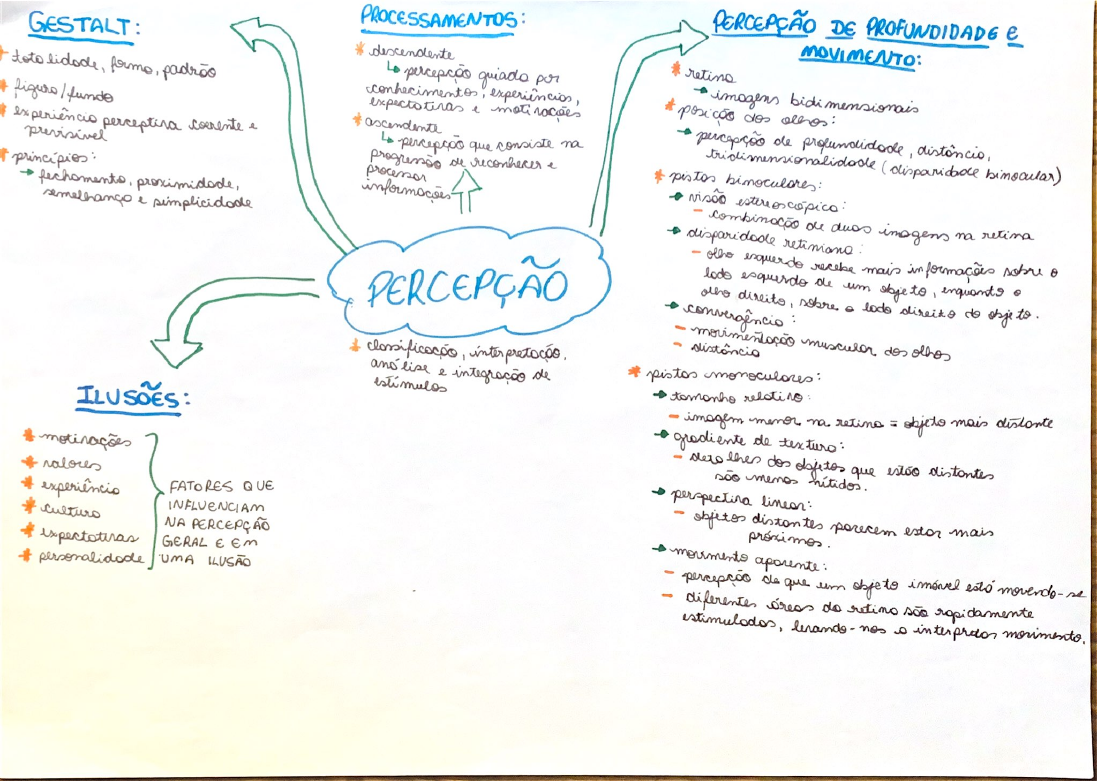 GESTALT:
* totalidade, forma, padrão
* figura/fundo
* experiência perceptiva coerente e
previsível
* princípios:
→ fechamento, proximidade,
semelhança e simplicidade
PROCESSAMENTOS:
* descendente
↳ percepção guiada por
conhecimentos, experiências,
expectativas e motivações
* ascendente
↳ percepção que consiste na
progressão de reconhecer e
processar
informações
PERCEPÇÃO DE PROFUNDIDADE e
MOVIMENTO:
* retina
→ imagens bidimensionais
* posição dos olhos:
→ percepção de profundidade, distância,
tridimensionalidade (disparidade binocular)
* pistas binoculares:
→ visão estereoscópica:
- combinação de duas imagens na retina
→ disparidade retiniana:
- olho esquerdo recebe mais informações sobre o
lado esquerdo de um objeto, enquanto o
olho direito, sobre o lado direito do objeto.
→ convergência:
- movimentação muscular dos olhos
- distância
* pistas monoculares:
→ tamanho relativo:
- imagem menor na retina = objeto mais distante
→ gradiente de textura:
- detalhes dos objetos que estão distantes
são menos nítidos.
→ perspectiva linear:
- objetos distantes parecem estar mais
próximos.
→ movimento aparente:
- percepção de que um objeto imóvel está movendo-se
- diferentes áreas da retina são rapidamente
estimuladas, levando-nos a interpretar movimento.
PERCEPÇÃO
* classificação, interpretação,
análise e integração de
estímulos
ILUSÕES:
* motivações
* valores
* experiência
* cultura
* expectativas
* personalidade
FATORES QUE
INFLUENCIAM
NA PERCEPÇÃO
GERAL E EM
UMA ILUSÃO